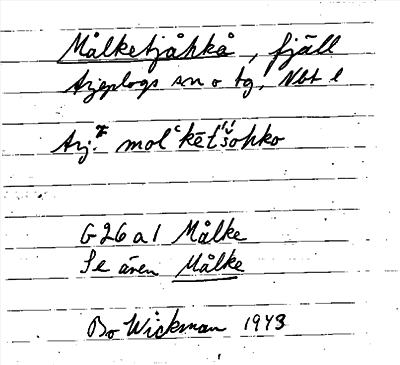 Målketjåhkå, fjäll
Arjeplogs sn o tg, Nbt l
Arj. molˈkētˈšohko
G26a1 Målke
Se även Målke
Bo Wickman 1943